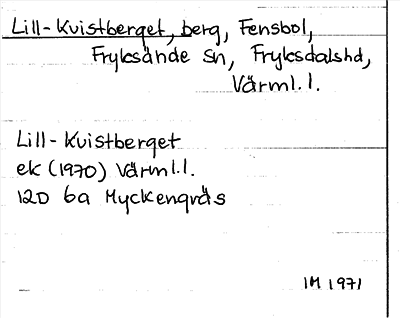 Lill-Kvistberget, berg, Fensbol,
Fryksände Sn, Fryksdalshd,
Värml.l.
Lill-Kvistberget
ek (1970) Värml.l.
12D 6a Myckengräs
IM 1971